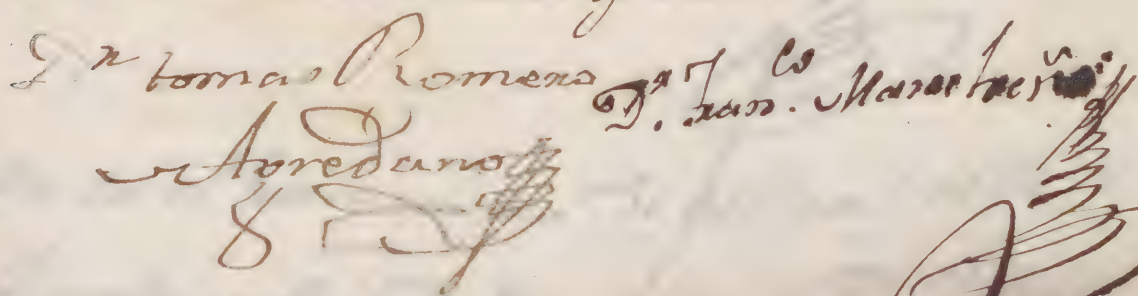 Dn tomas Romero
Avredano
Dn Franco. Manse treño